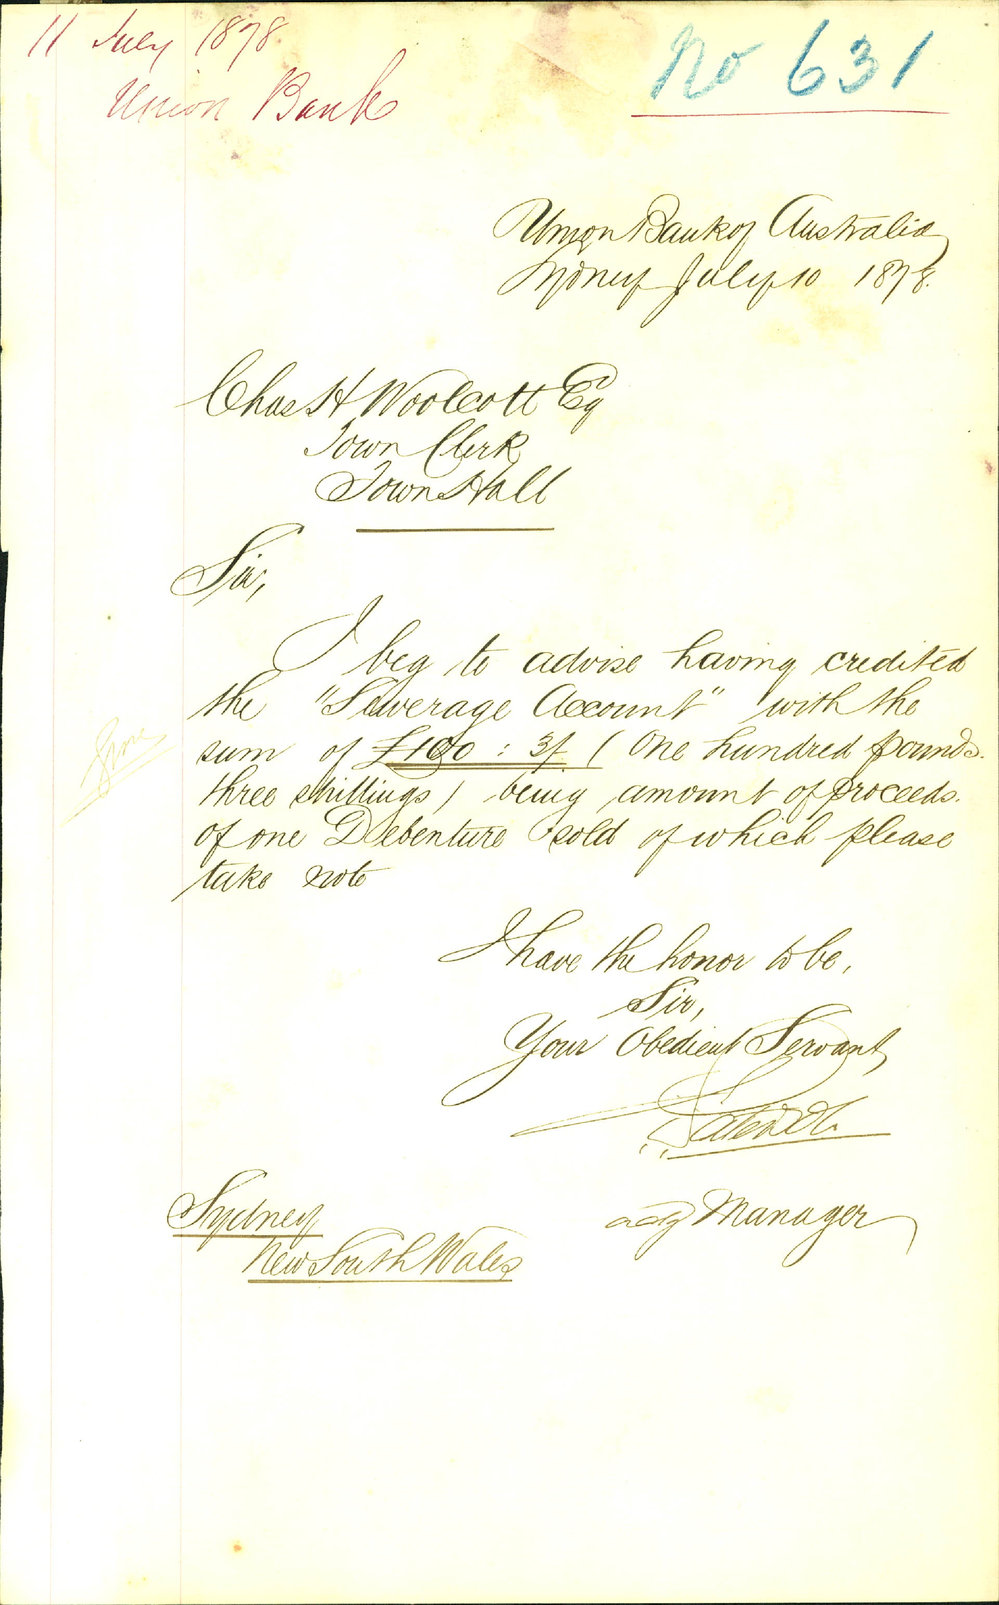 11 July 1878.
Union Bank
No 631
Union Bank of Australia
Sydney July 10 1878.
Chas H Woolcott Esq
Town Clerk
Town Hall
Sir,
I beg to advise having credited
the "Sewerage Account" with the
sum of £100 : 3/. (One hundred pounds.
three shillings) being amount of proceeds.
of one Debenture sold of which please
take note
I have the honor to be,
Sir,
Your Obedient Servant
actg Manager
Sydney
New South Wales